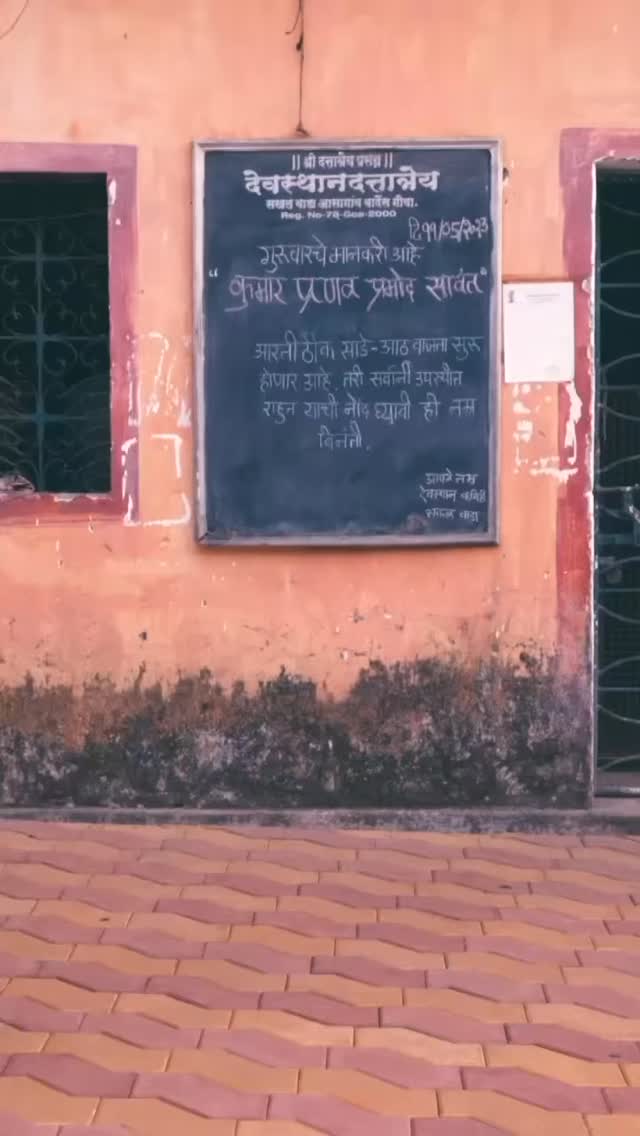 || श्री दत्तात्रेय प्रसन्न ||
देवस्थान दत्तात्रेय
सखल वाडा आसगांव बार्देस गोवा.
Reg. No-78-Goa-2000
दि. ११/०५/२०२३
गुरुवारचे मानकरी आहे
"कुमार प्रणव प्रमोद सावंत"
आरती ठीक साडे-आठ वाजता सुरू
होणार आहे. तरी सर्वांनी उपस्थीत
राहुन याची नोंद घ्यावी ही नम्र
विनंती.
आपले नम्र
देवस्थान कमिटी
सखल वाडा